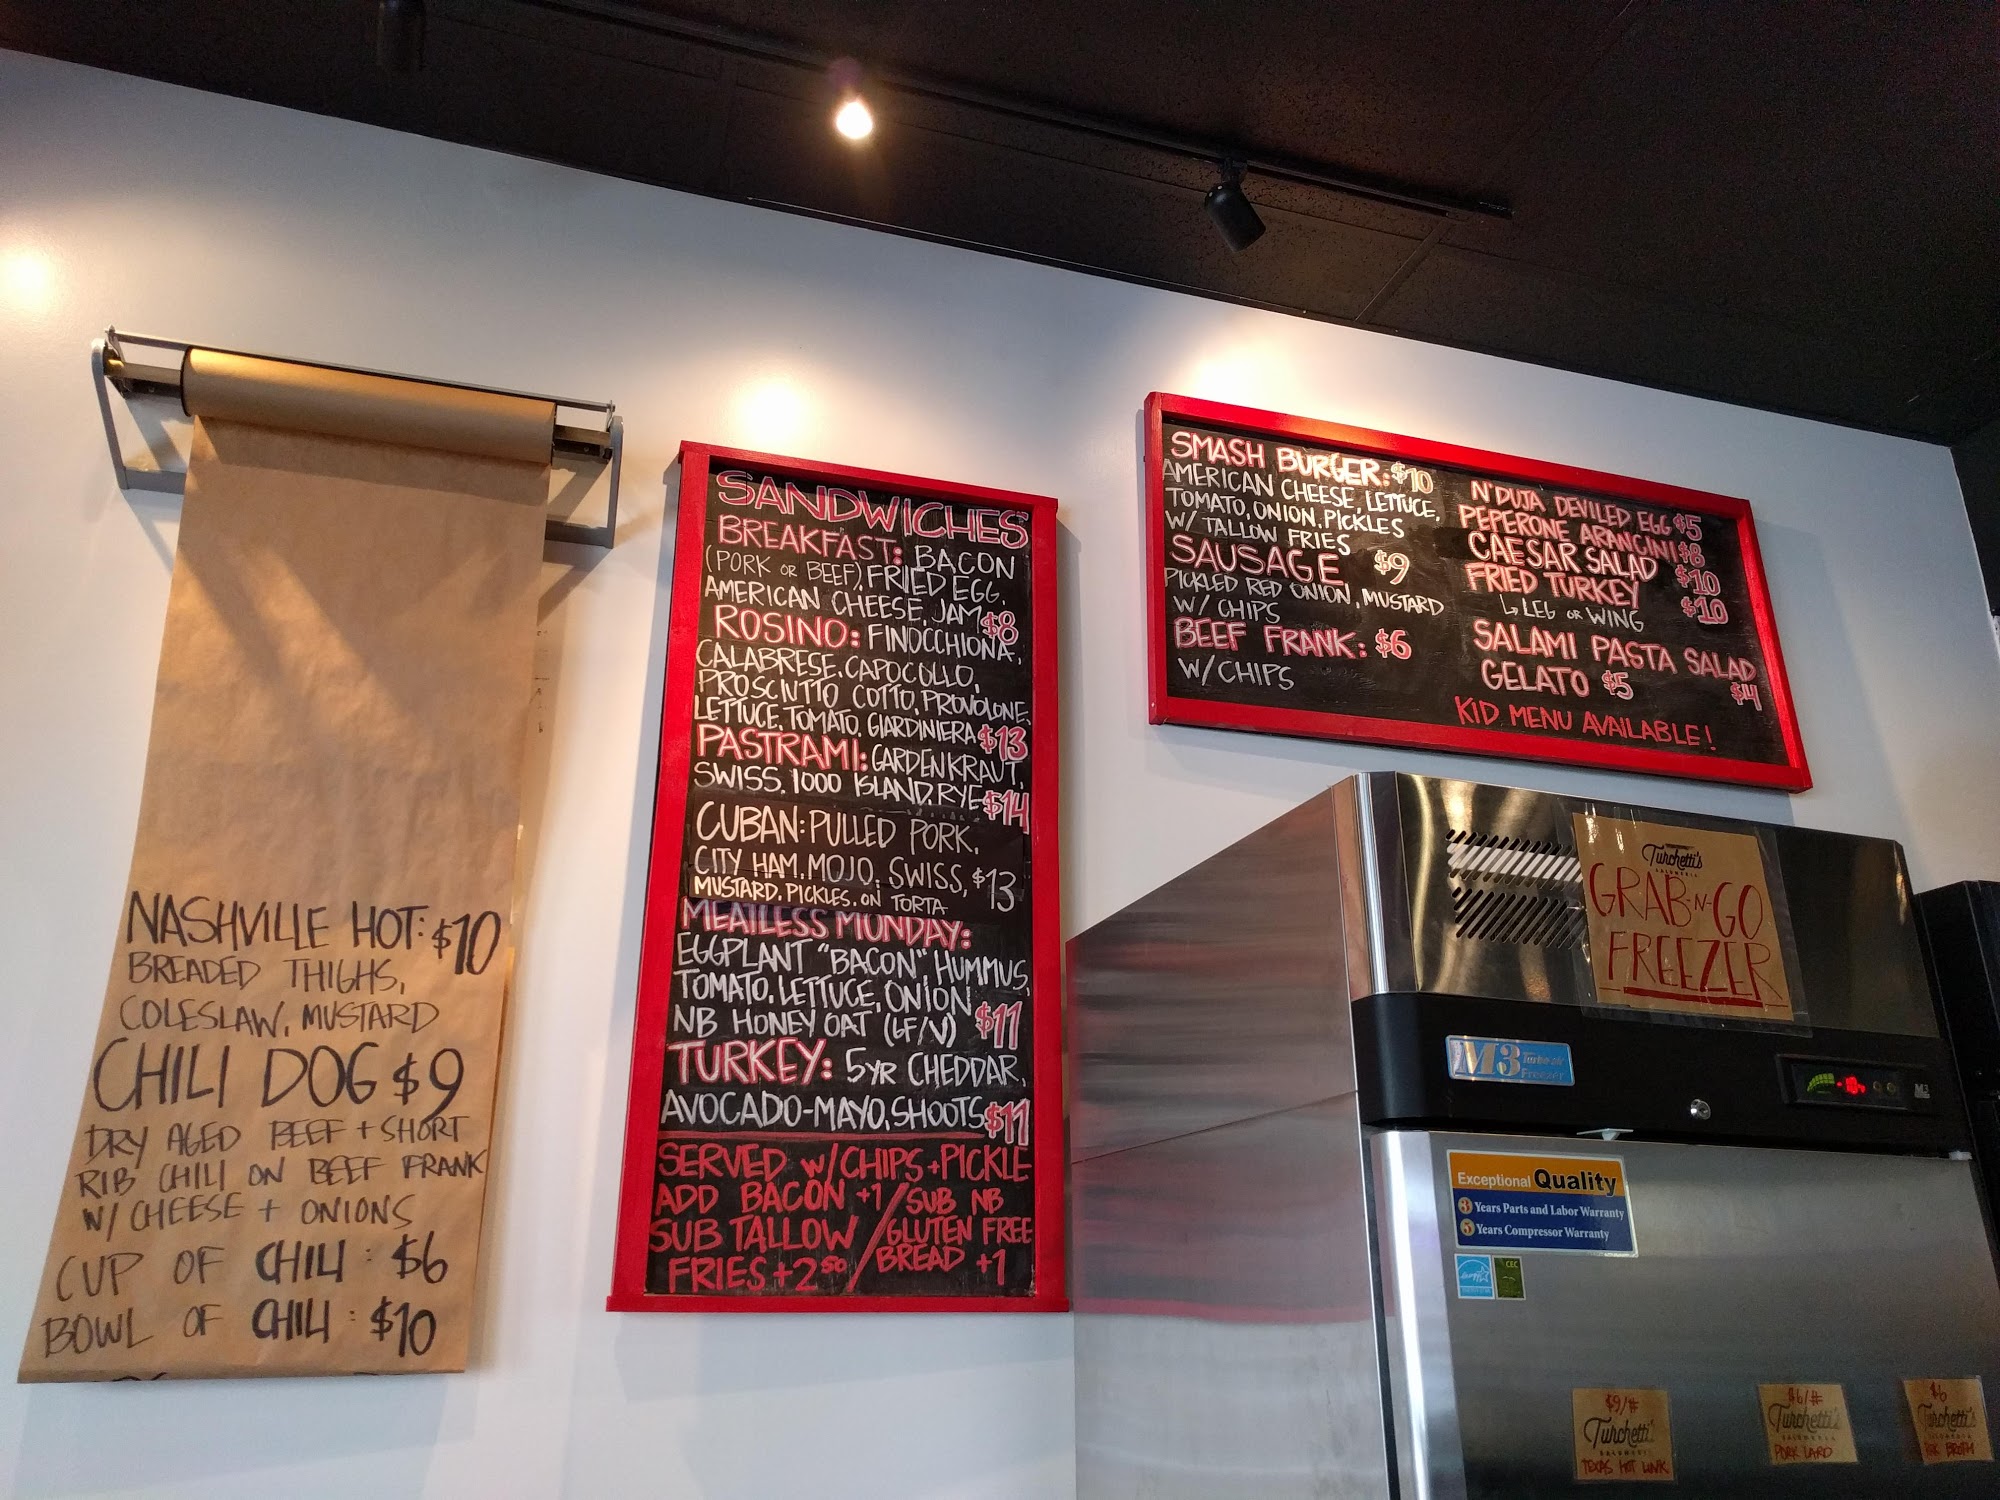 NASHVILLE HOT: $10
BREADED THIGHS,
COLESLAW, MUSTARD
CHILI DOG $9
DRY AGED BEEF + SHORT
RIB CHILI ON BEEF FRANK
W/ CHEESE + ONIONS
CUP OF CHILI : $6
BOWL OF CHILI : $10
SANDWICHES
BREAKFAST: BACON
(PORK OR BEEF), FRIED EGG,
AMERICAN CHEESE, JAM $8
ROSINO: FINOCCHIONA,
CALABRESE, CAPOCOLLO,
PROSCIUTTO COTTO, PROVOLONE,
LETTUCE, TOMATO, GIARDINIERA $13
PASTRAMI: GARDEN KRAUT,
SWISS, 1000 ISLAND, RYE $14
CUBAN: PULLED PORK,
CITY HAM, MOJO, SWISS, $13
MUSTARD, PICKLES, ON TORTA
MEATLESS MUNDAY:
EGGPLANT "BACON", HUMMUS,
TOMATO, LETTUCE, ONION
NB HONEY OAT (GF/V) $11
TURKEY: 5YR CHEDDAR,
AVOCADO-MAYO, SHOOTS $11
SERVED W/ CHIPS + PICKLE
ADD BACON +1 / SUB NB
SUB TALLOW / GLUTEN FREE
FRIES +2 50 / BREAD +1
SMASH BURGER: $10
AMERICAN CHEESE, LETTUCE,
TOMATO, ONION, PICKLES
W/ TALLOW FRIES
SAUSAGE $9
PICKLED RED ONION, MUSTARD
W/ CHIPS
BEEF FRANK: $6
W/ CHIPS
N'DUJA DEVILED EGG $5
PEPERONE ARANCINI $8
CAESAR SALAD $10
FRIED TURKEY $10
↳ LEG OR WING
SALAMI PASTA SALAD $4
GELATO $5
KID MENU AVAILABLE!
Turchetti's
SALUMERIA
GRAB-N-GO
FREEZER
M3 Turbo air
Freezer
M3
Exceptional Quality
3 Years Parts and Labor Warranty
5 Years Compressor Warranty
CEC
$9/#
Turchetti's
SALUMERIA
TEXAS HOT LINK
$6/#
Turchetti's
SALUMERIA
PORK LARD
$6
Turchetti's
SALUMERIA
BROTH